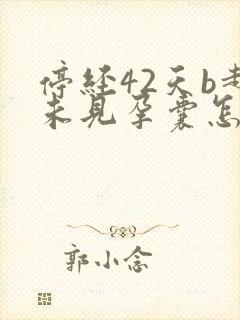 停经42天b
未见孕囊怎
郭小念